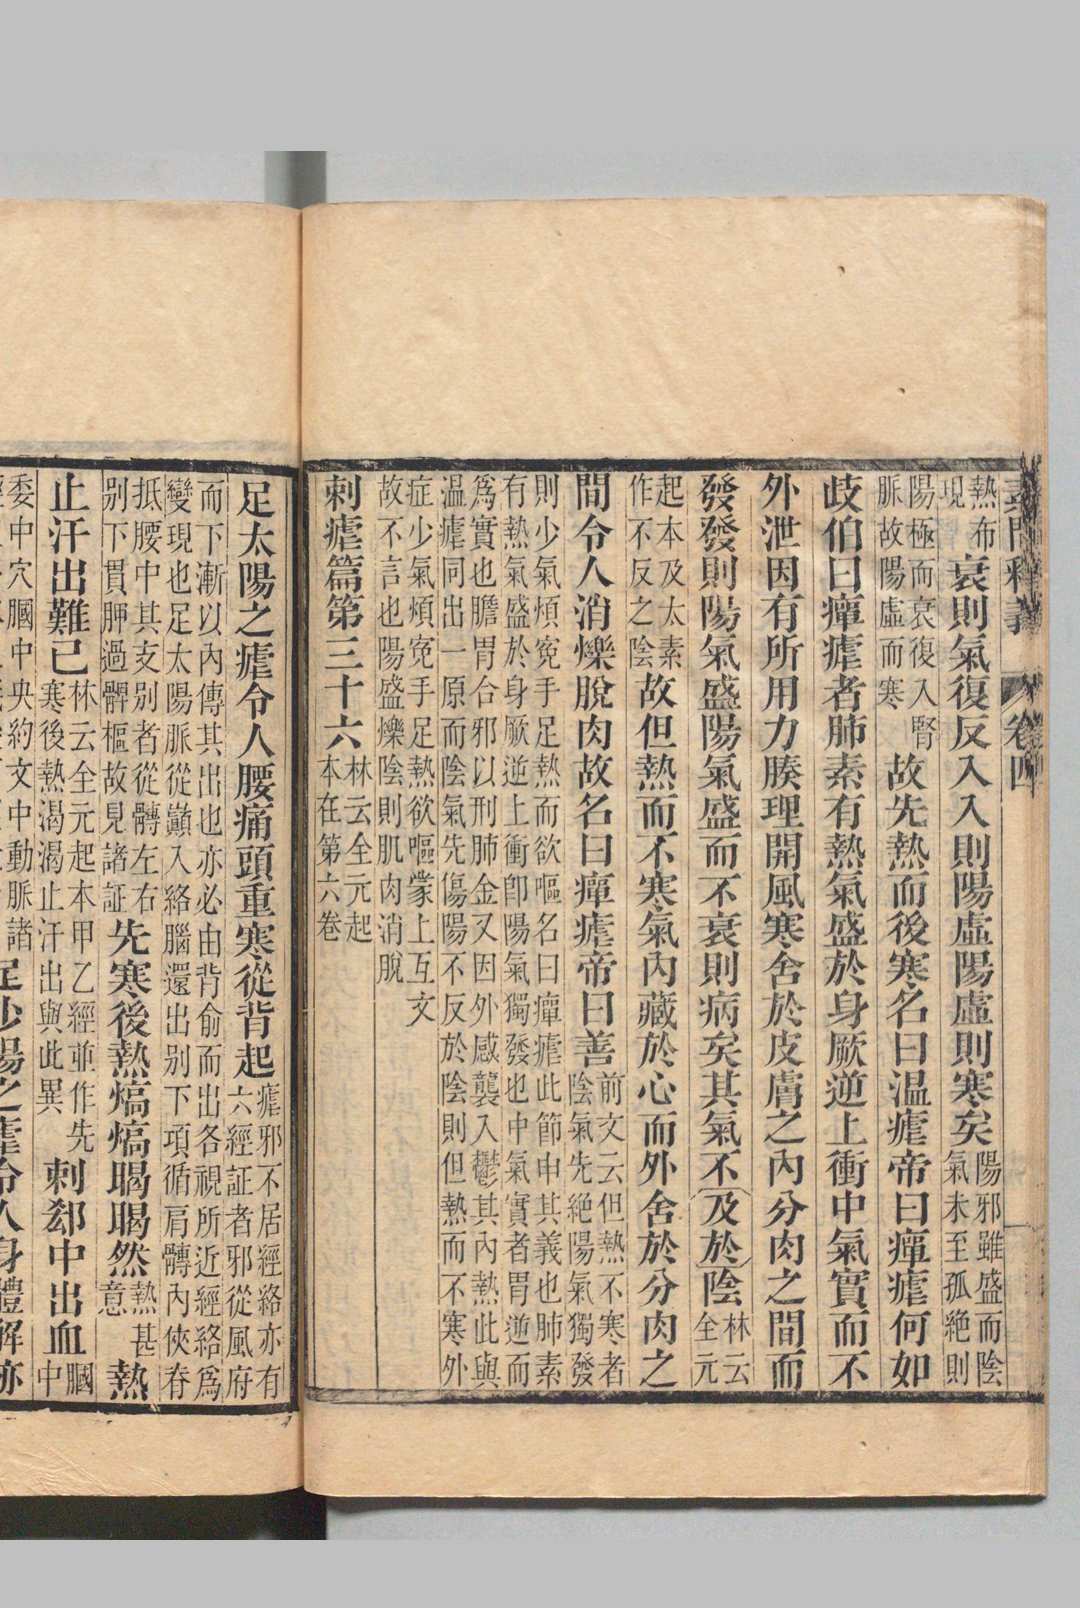 素問釋義 卷四
熱布
現
衰則氣復反入入則陽虛陽虛則寒矣
陽邪雖盛而陰
氣未至孤絶則
陽極而衰復入腎
脈故陽虛而寒
故先熱而後寒名曰温瘧帝曰癉瘧何如
歧伯曰癉瘧者肺素有熱氣盛於身厥逆上衝中氣實而不
外泄因有所用力腠理開風寒舍於皮膚之內分肉之間而
發發則陽氣盛陽氣盛而不衰則病矣其氣不及於陰
林云
全元
起本及太素
作不反之陰
故但熱而不寒氣內藏於心而外舍於分肉之
間令人消爍脫肉故名曰癉瘧帝曰善
前文云但熱不寒者
陰氣先絶陽氣獨發
則少氣煩寃手足熱而欲嘔名曰癉瘧此節申其義也肺素
有熱氣盛於身厥逆上衝卽陽氣獨發也中氣實者胃逆而
爲實也膽胃合邪以刑肺金又因外感襲入鬱其內熱此與
温瘧同出一原而陰氣先傷陽不反於陰則但熱而不寒外
症少氣煩寃手足熱欲嘔蒙上互文
故不言也陽盛爍陰則肌肉消脫
刺瘧篇第三十六
林云全元起
本在第六卷
足太陽之瘧令人腰痛頭重寒從背起
瘧邪不居經絡亦有
六經証者邪從風府
而下漸以內傳其出也亦必由背俞而出各視所近經絡爲
變現也足太陽脈從巔入絡腦還出别下項循肩髆內俠脊
抵腰中其支别者從髆左右
别下貫胛過髀樞故見諸証
先寒後熱熇熇暍暍然
熱甚
意
熱
止汗出難已
林云全元起本甲乙經並作先
寒後熱渴渴止汗出與此異
刺郄中出血
膕
中
委中穴膕中央約文中動脈諸
足少陽之瘧令人身體解㑊